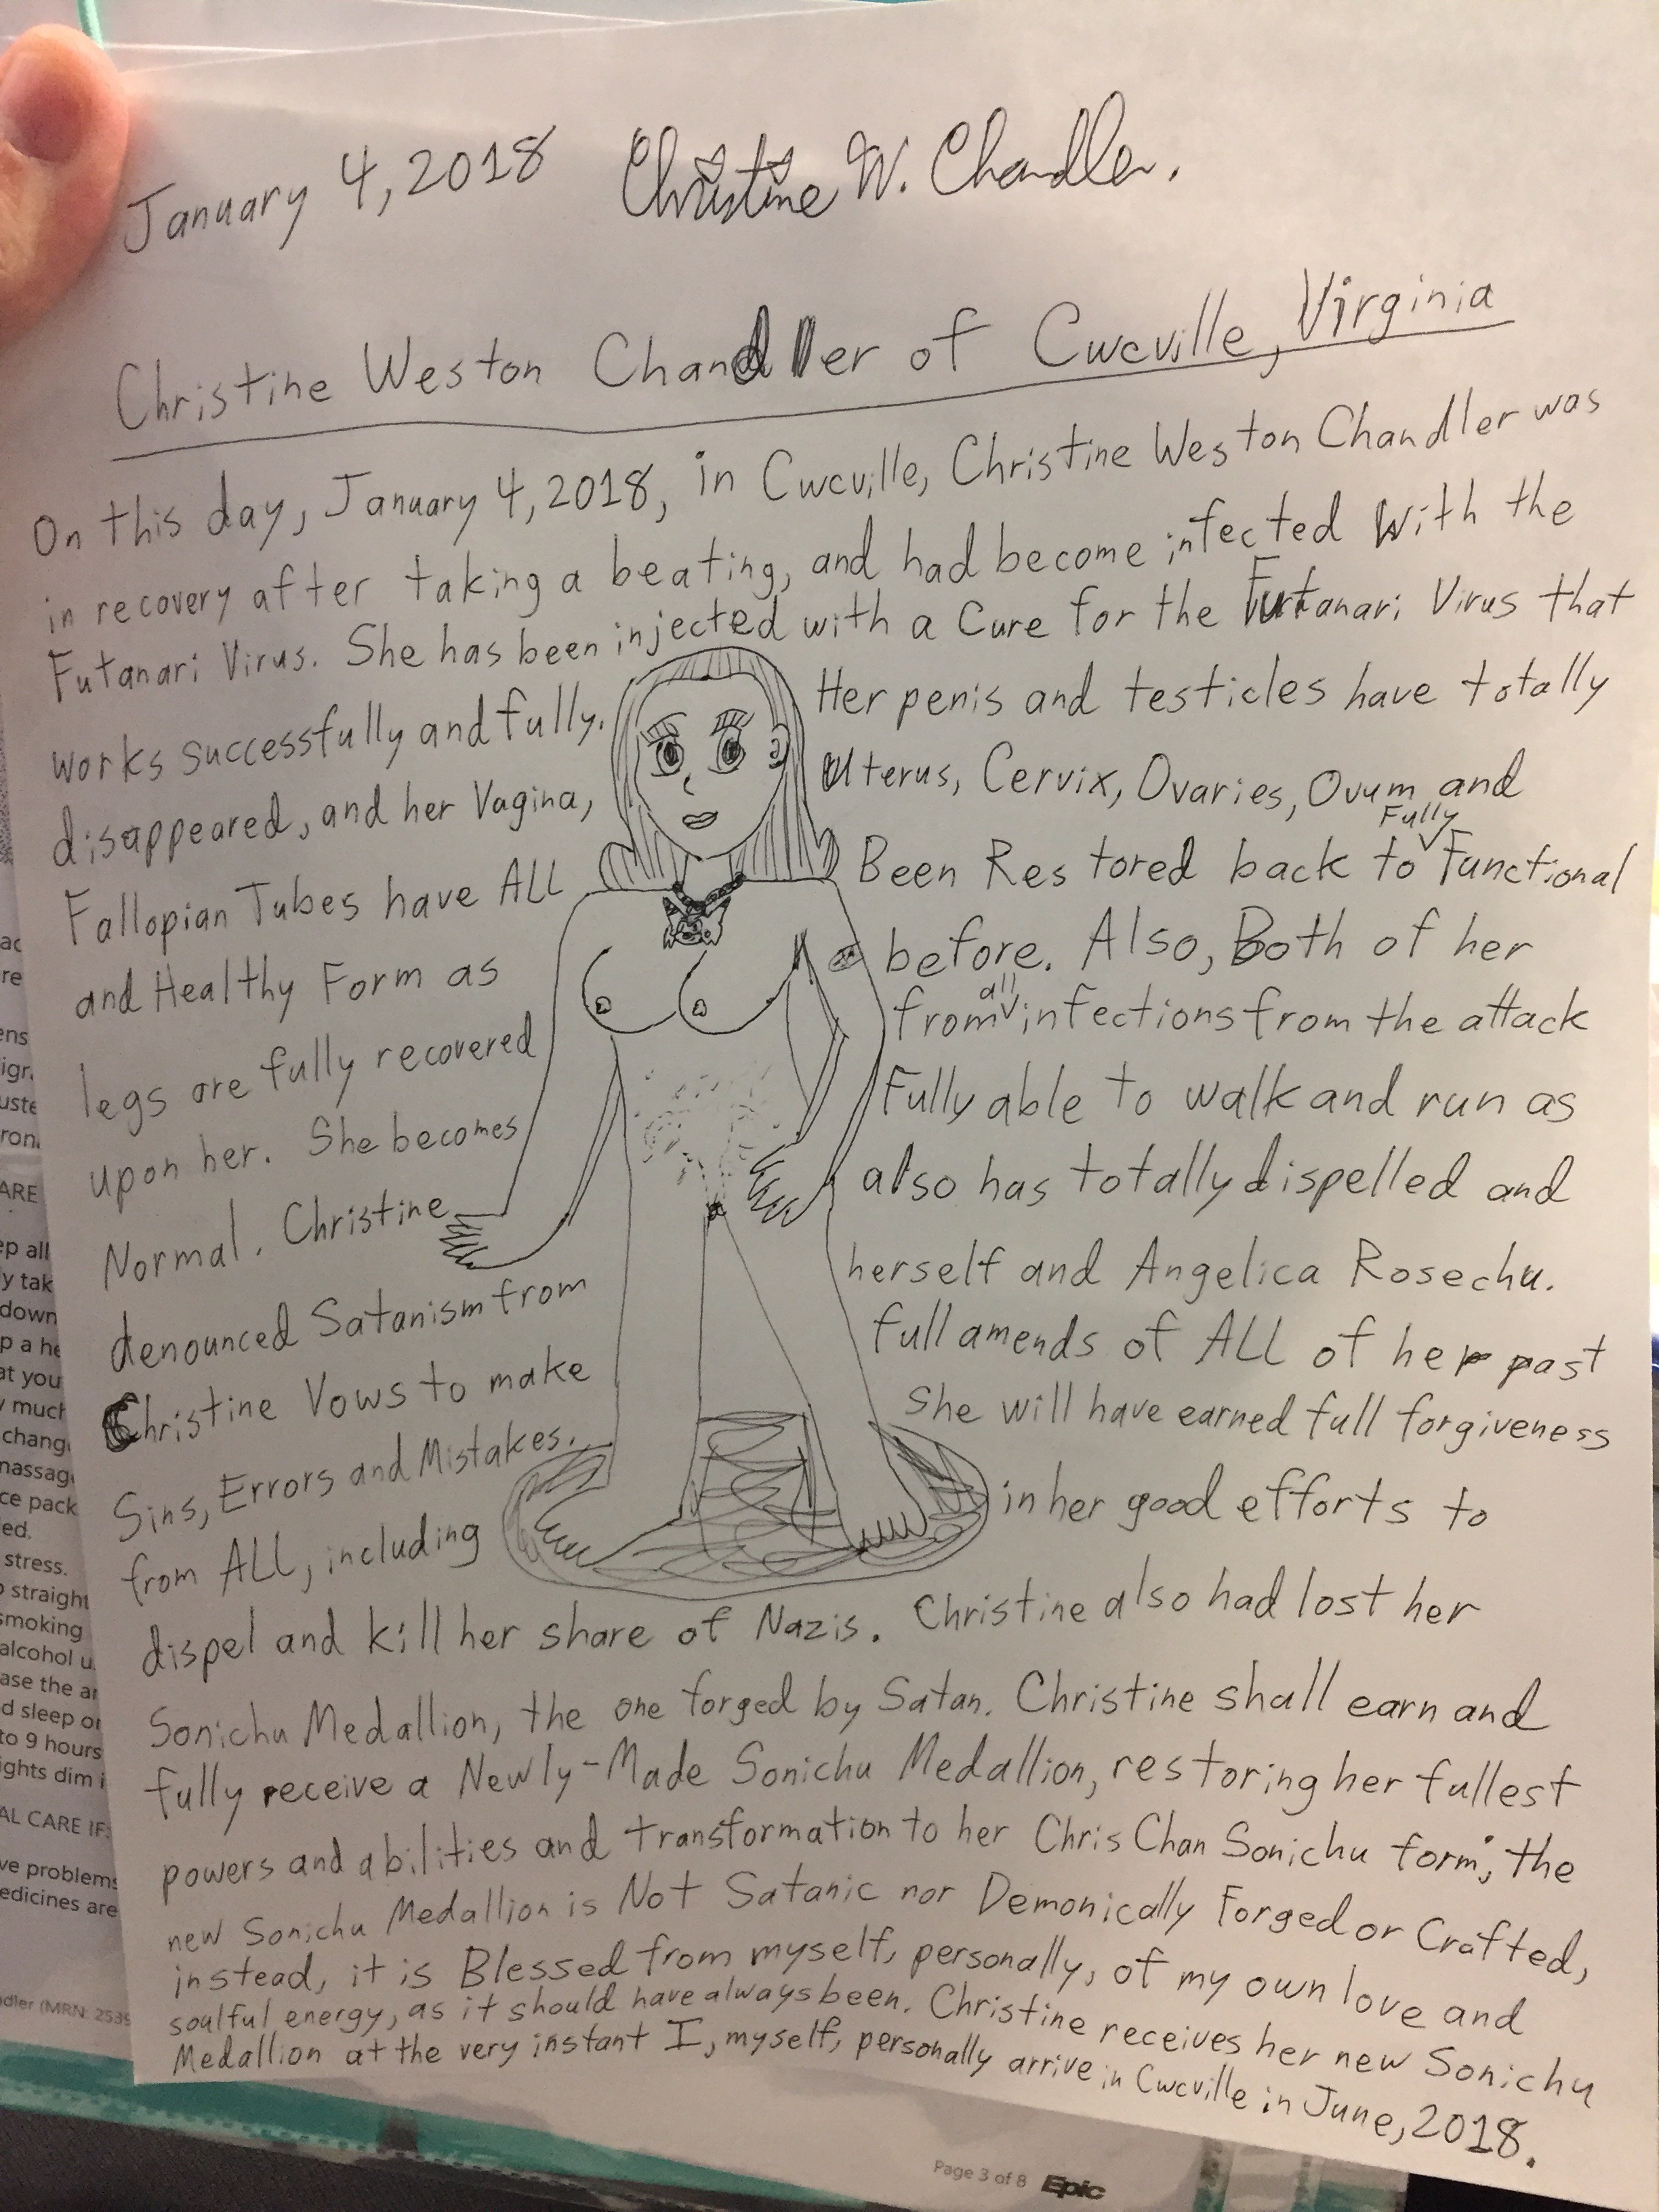 January 4, 2018 Christine W. Chandler.
Christine Weston Chandler of Cwcville, Virginia
On this day, January 4, 2018, in Cwcville, Christine Weston Chandler was
in recovery after taking a beating, and had become infected with the
Futanari Virus. She has been injected with a Cure for the Futanari Virus that
works successfully and fully. Her penis and testicles have totally
disappeared, and her Vagina, Uterus, Cervix, Ovaries, Ovum and
Fallopian Tubes have ALL Been Restored back to Fully Functional
and Healthy Form as before. Also, Both of her
legs are fully recovered from all infections from the attack
upon her. She becomes Fully able to walk and run as
Normal. Christine also has totally dispelled and
denounced Satanism from herself and Angelica Rosechu.
Christine Vows to make full amends of ALL of her past
Sins, Errors and Mistakes. She will have earned full forgiveness
from ALL, including in her good efforts to
dispel and kill her share of Nazis. Christine also had lost her
Sonichu Medallion, the one forged by Satan. Christine shall earn and
fully receive a Newly-Made Sonichu Medallion, restoring her fullest
powers and abilities and transformation to her Chris Chan Sonichu form; the
new Sonichu Medallion is Not Satanic nor Demonically Forged or Crafted,
instead, it is Blessed from myself, personally, of my own love and
soulful energy, as it should have always been. Christine receives her new Sonichu
Medallion at the very instant I, myself, personally arrive in Cwcville in June, 2018.
ac
re
ens
igr
uste
ron
ARE
ep all
y tak
down
p a he
at you
y much
chang
massag
ce pack
ed.
stress.
straight
smoking
alcohol u
ase the ar
d sleep or
to 9 hours
ights dim i
AL CARE IF:
ve problems
edicines are
dler (MRN: 2539
Page 3 of 8 Epic